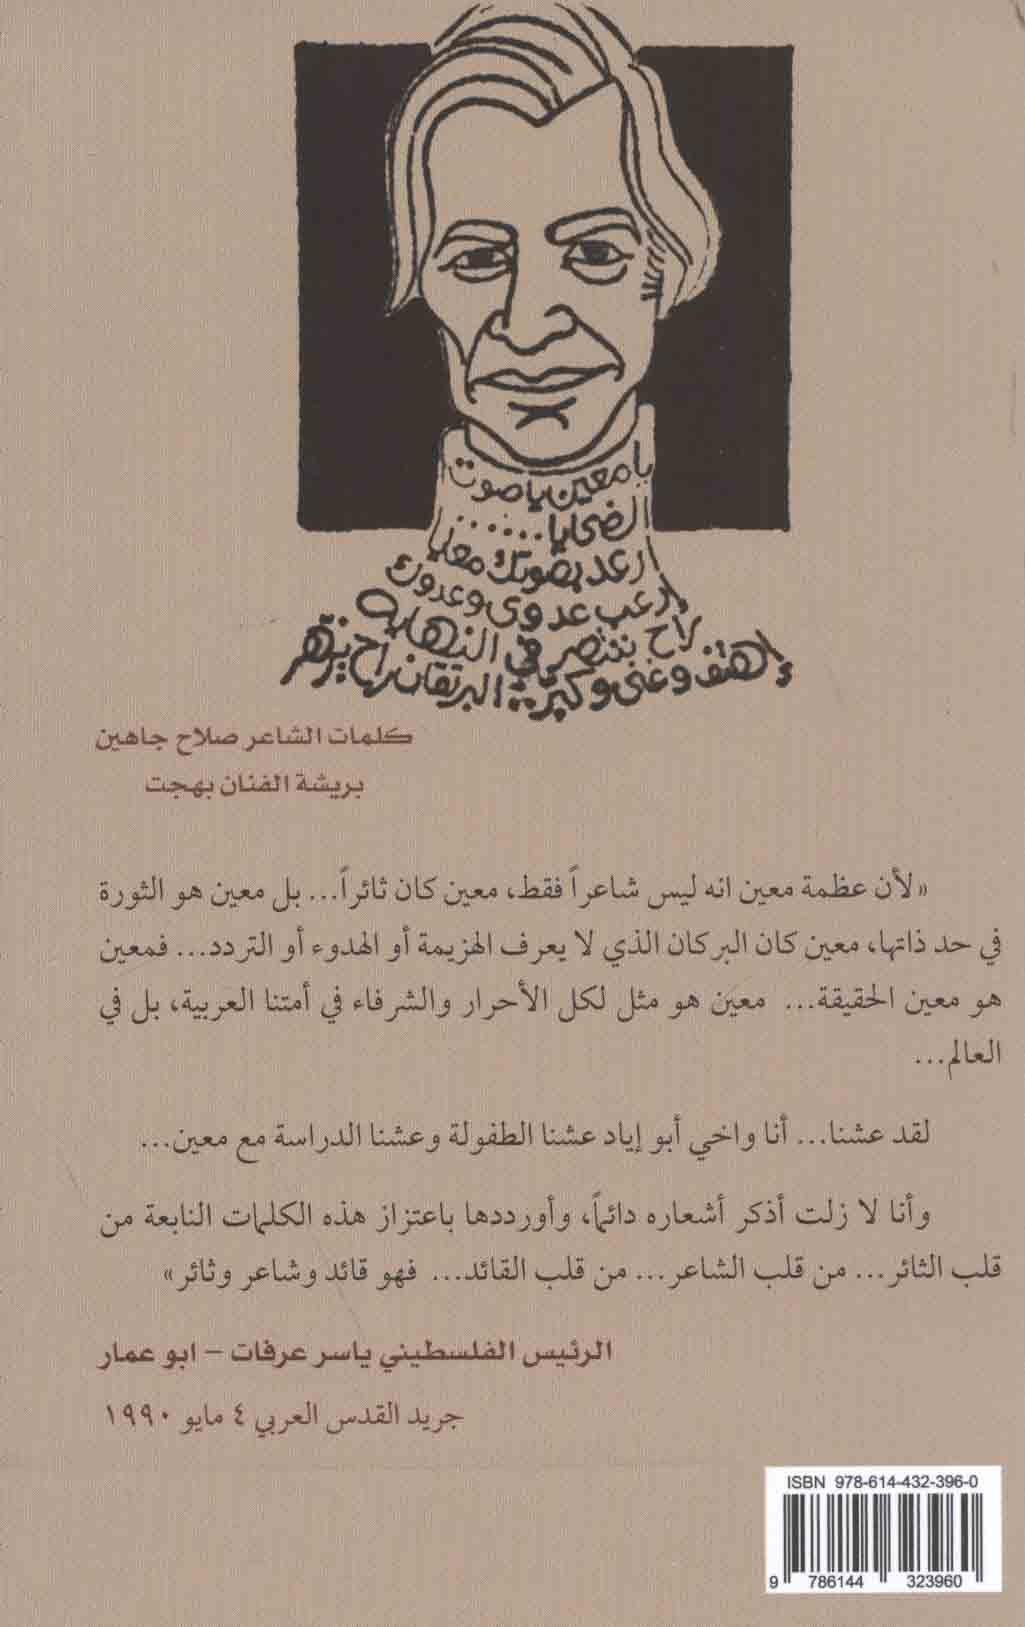 يا معين يا صوت
الضحايا......
ارعد بصوتك معايا
إرعب عدوى وعدوك
راح ننتصر في النهايه
إهتف وغنى وكبر :: البرتقان راح يزهر
كلمات الشاعر صلاح جاهين
بريشة الفنان بهجت
«لأن عظمة معين انه ليس شاعراً فقط، معين كان ثائراً... بل معين هو الثورة
في حد ذاتها، معين كان البركان الذي لا يعرف الهزيمة أو الهدوء أو التردد... فمعين
هو معين الحقيقة... معين هو مثل لكل الأحرار والشرفاء في أمتنا العربية، بل في
العالم...
لقد عشنا... أنا واخي أبو إياد عشنا الطفولة وعشنا الدراسة مع معين...
وأنا لا زلت أذكر أشعاره دائماً، وأورددها باعتزاز هذه الكلمات النابعة من
قلب الثائر... من قلب الشاعر... من قلب القائد... فهو قائد وشاعر وثائر»
الرئيس الفلسطيني ياسر عرفات - ابو عمار
جريد القدس العربي ٤ مايو ١٩٩٠
ISBN 978-614-432-396-0
9 786144 323960